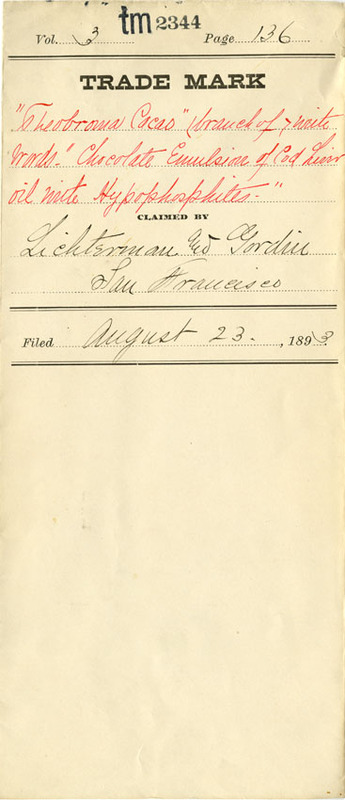 tm 2344
Vol. 3 Page 136
TRADE MARK
"Theobroma Cacao" (branch of) with
Words." Chocolate Emulsion of Cod Liver
oil with Hypophosphites."
CLAIMED BY
Lichterman & Gordin
San Francisco
Filed August 23. , 1893.